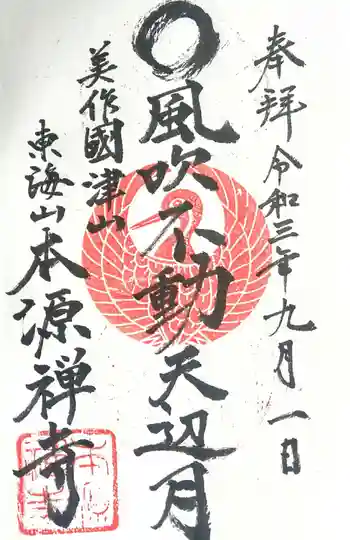 奉拜 令和三年九月一日
風吹不動天辺月
美作國津山
東海山本源禅寺